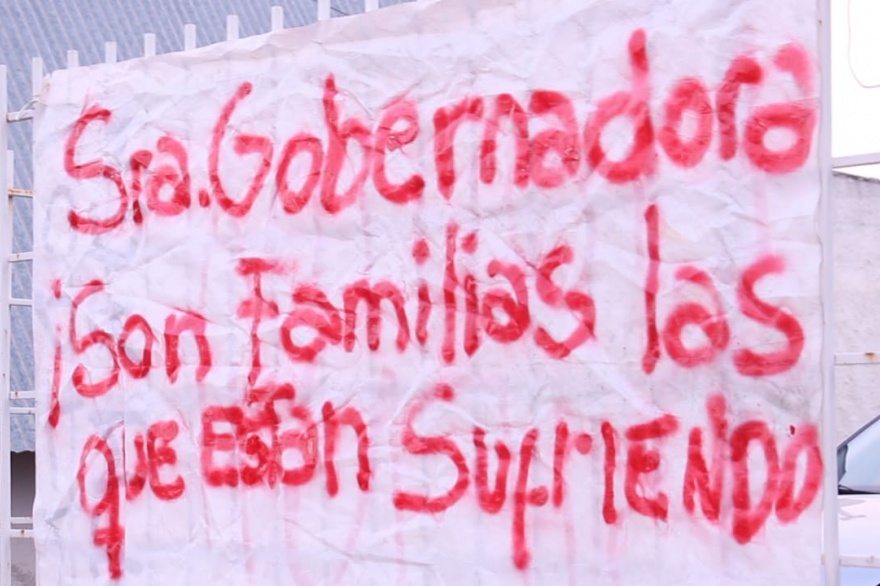 Sra. Gobernadora
¡Son Familias las
que Están Sufriendo